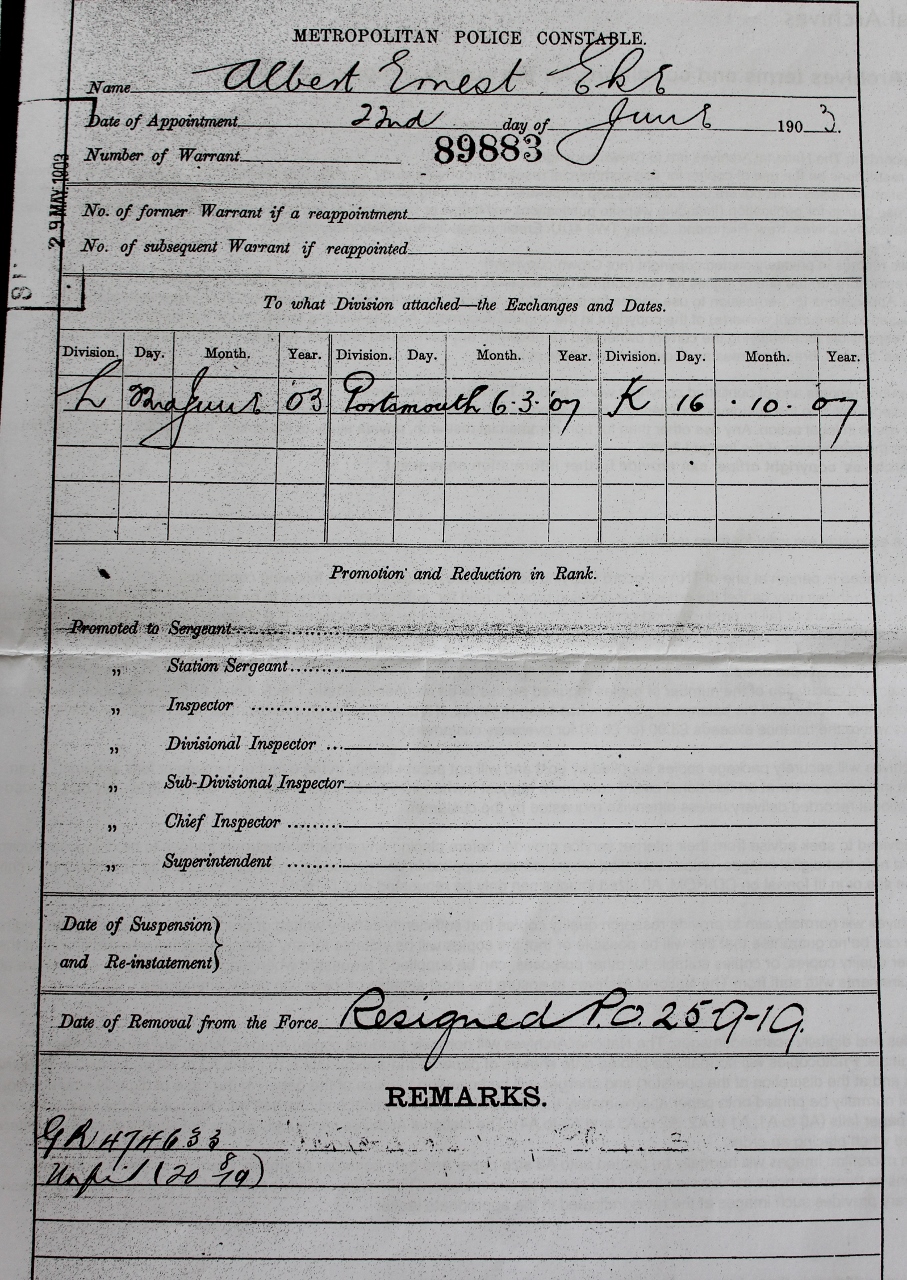 METROPOLITAN POLICE CONSTABLE.
Name Albert Ernest Eke
Date of Appointment 22nd day of June 1903.
Number of Warrant 89883
29 MAY. 1903
No. of former Warrant if a reappointment
No. of subsequent Warrant if reappointed
To what Division attached—the Exchanges and Dates.
Division. Day. Month. Year. Division. Day. Month. Year. Division. Day. Month. Year.
L 22nd June 03 Portsmouth 6.3.'07 K 16 . 10 . 07
Promotion and Reduction in Rank.
Promoted to Sergeant
„ Station Sergeant.........
„ Inspector ...............
„ Divisional Inspector ...
„ Sub-Divisional Inspector
„ Chief Inspector .........
„ Superintendent .........
Date of Suspension }
and Re-instatement }
Date of Removal from the Force Resigned P.O. 25-9-19.
REMARKS.
GR 474633
(20 8/19)